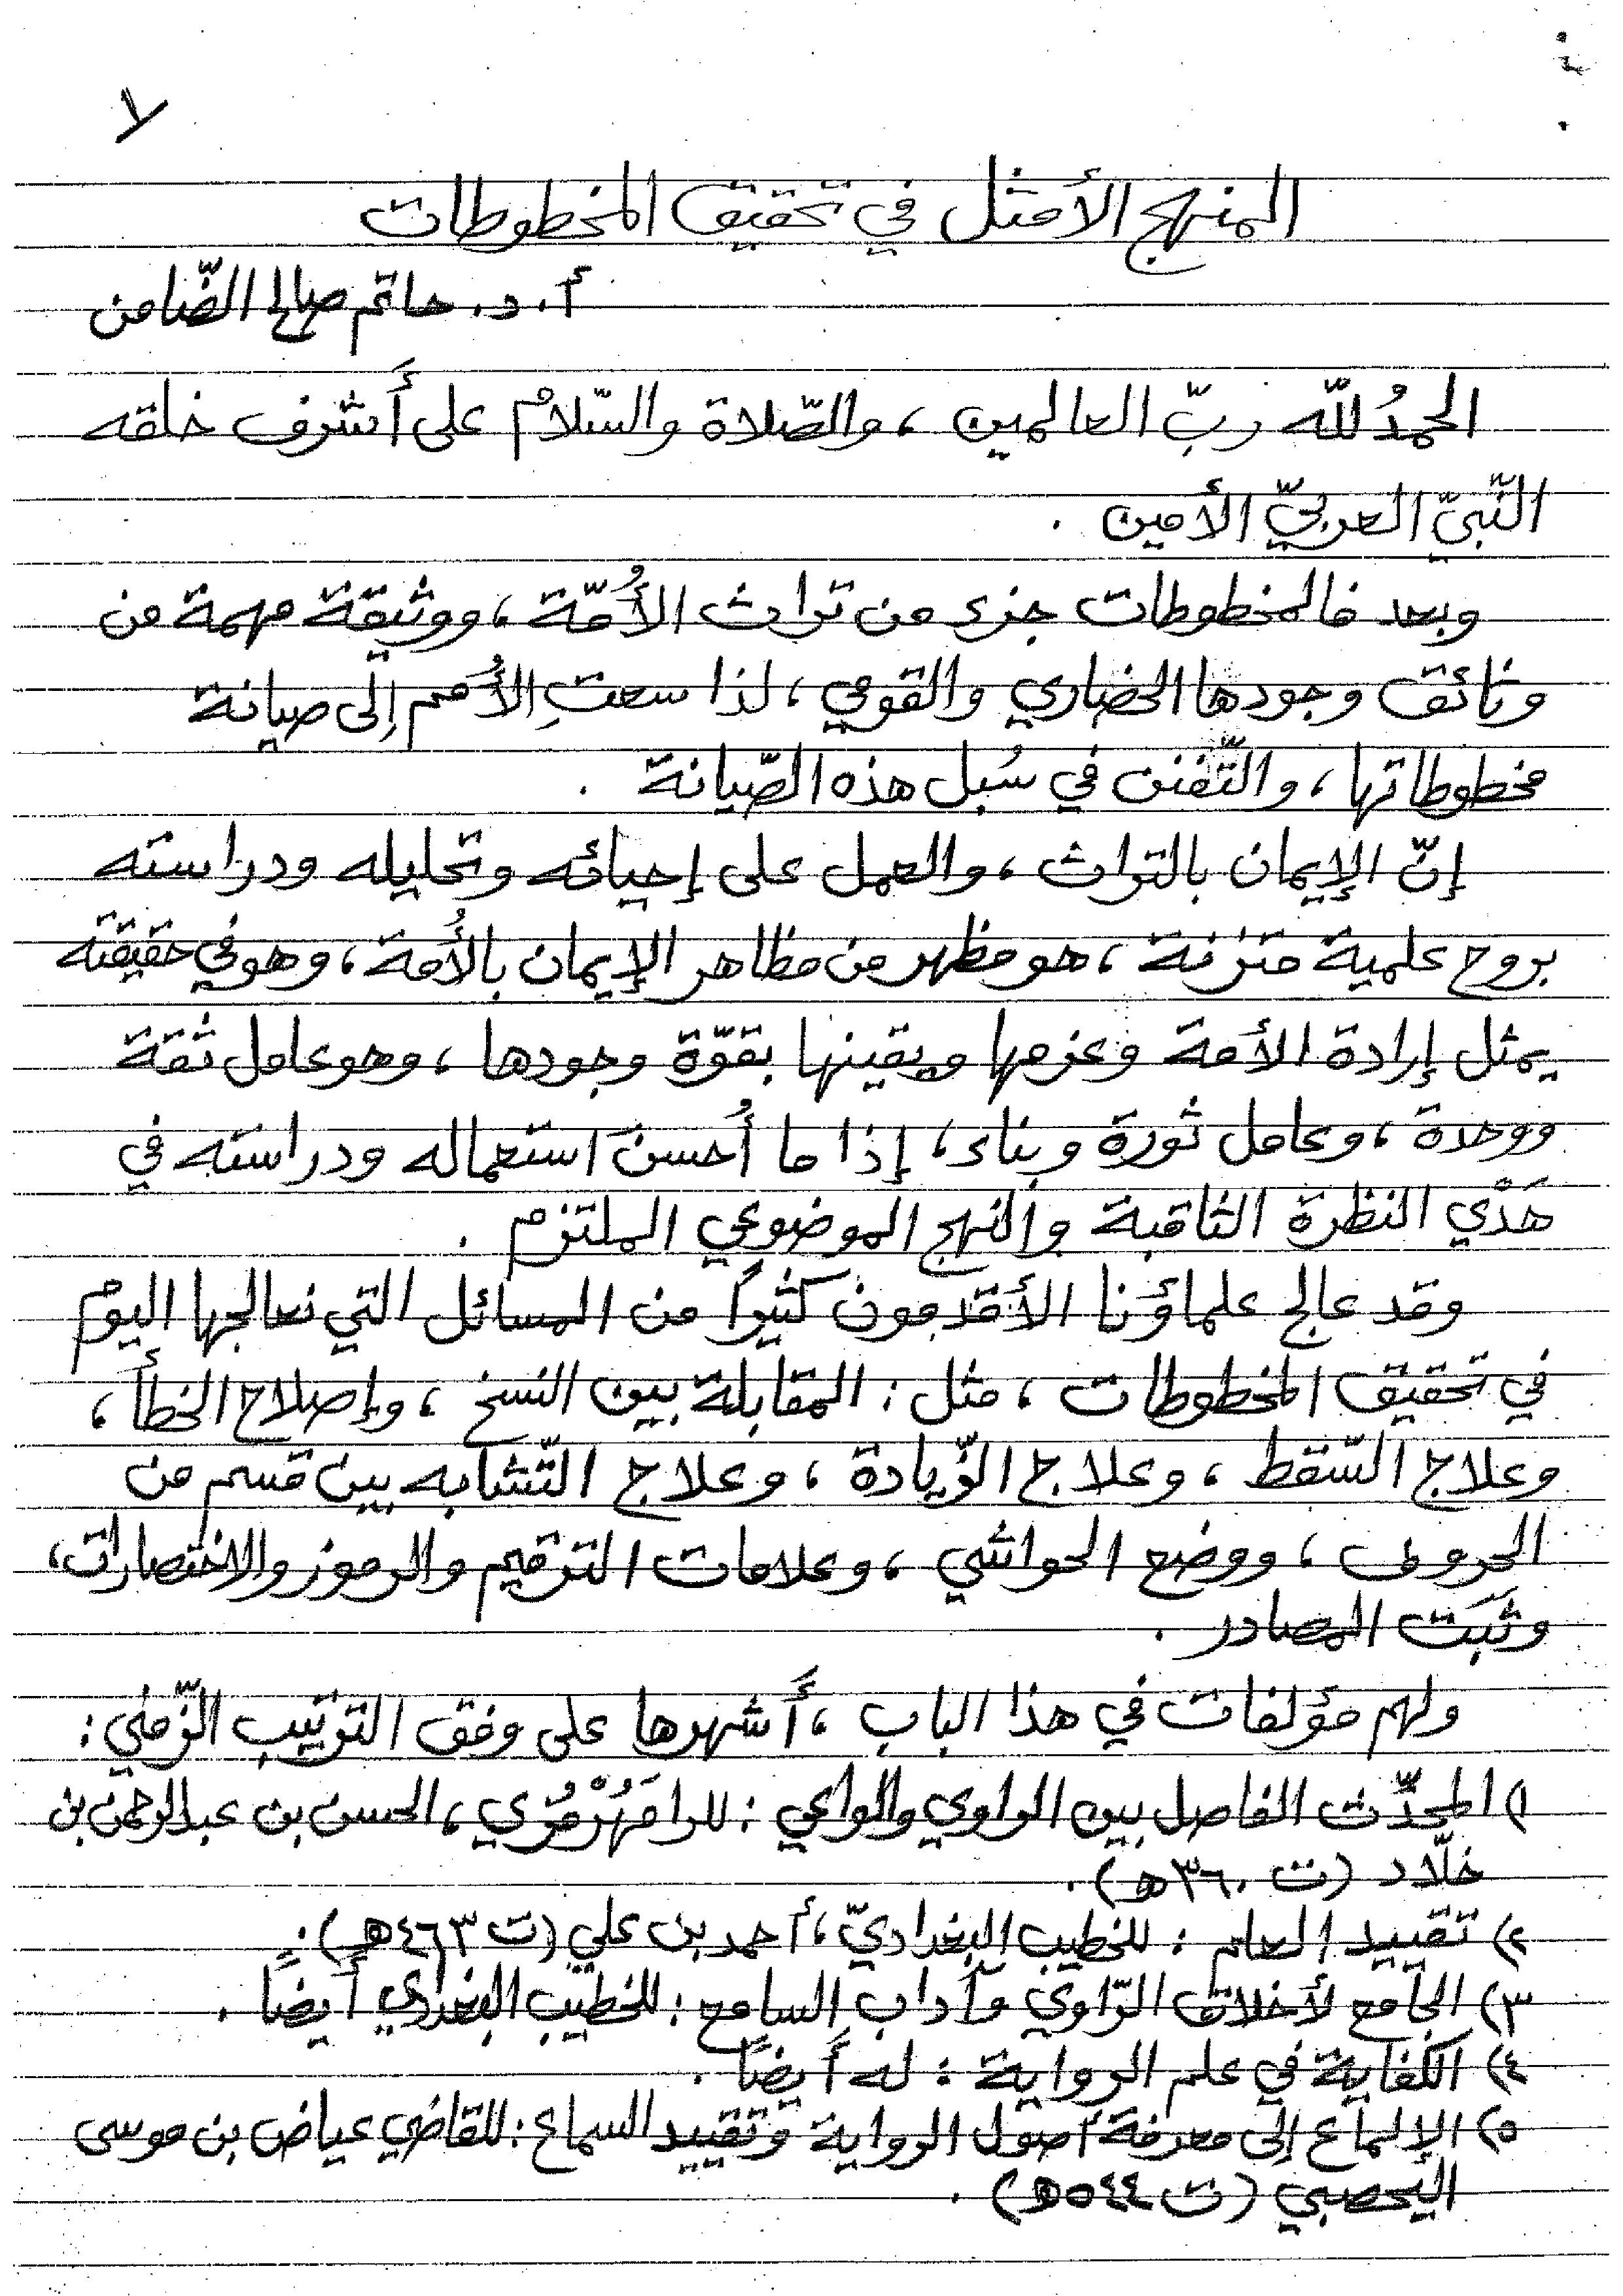 المنهج الأمثل في تحقيق المخطوطات
أ. د. حاتم صالح الضّامن
الحمدُ للّه ربّ العالمين ، والصّلاة والسّلام على أَشرف خلقه
النّبيّ العربيّ الأمين .
وبعد فالمخطوطات جزء من تراث الأُمّة ، ووثيقة مهمة من
وثائق وجودها الحضاري والقومي ، لذا سعتِ الأُمم إلى صيانة
مخطوطاتها ، والتّفنن في سُبل هذه الصّيانة .
إنّ الإيمان بالتراث ، والعمل على إحيائه وتحليله ودراسته
بروح علمية متزنة ، هو مظهر من مظاهر الإيمان بالأُمة ، وهو في حقيقته
يمثل إرادة الأمة وعزمها ويقينها بقوّة وجودها ، وهو عامل ثقة
ووحدة ، وعامل ثورة وبناء ، إذا ما أُحسنَ استعماله ودراسته في
هَدْي النظرة الثاقبة والنهج الموضوعي الملتزم .
وقد عالج علماؤنا الأقدمون كثيرًا من المسائل التي نعالجها اليوم
في تحقيق المخطوطات ، مثل : المقابلة بين النسخ ، وإصلاح الخطأ ،
وعلاج السّقط ، وعلاج الزّيادة ، وعلاج التّشابه بين قسم من
الحروف ، ووضع الحواشي ، وعلامات الترقيم والرموز والاختصارات ،
وثَبَت المصادر .
ولهم مؤلفات في هذا الباب ، أَشهرها على وفق الترتيب الزّمني :
١) المحدِّث الفاصل بين الراوي والواعي : للرامَهُرْمُزي ، الحسن بن عبدالرحمن بن
خلّاد (ت ٣٦٠ هـ) .
٢) تقييد العلم : للخطيب البغداديّ ، أحمد بن علي (ت ٤٦٣ هـ) .
٣) الجامع لأخلاق الرّاوي وآداب السامع : للخطيب البغدادي أيضًا .
٤) الكفاية في علم الرواية : له أَيضًا .
٥) الإلماع إلى معرفة أصول الرواية وتقييد السماع : للقاضي عياض بن موسى
اليحصبي (ت ٥٤٤ هـ) .